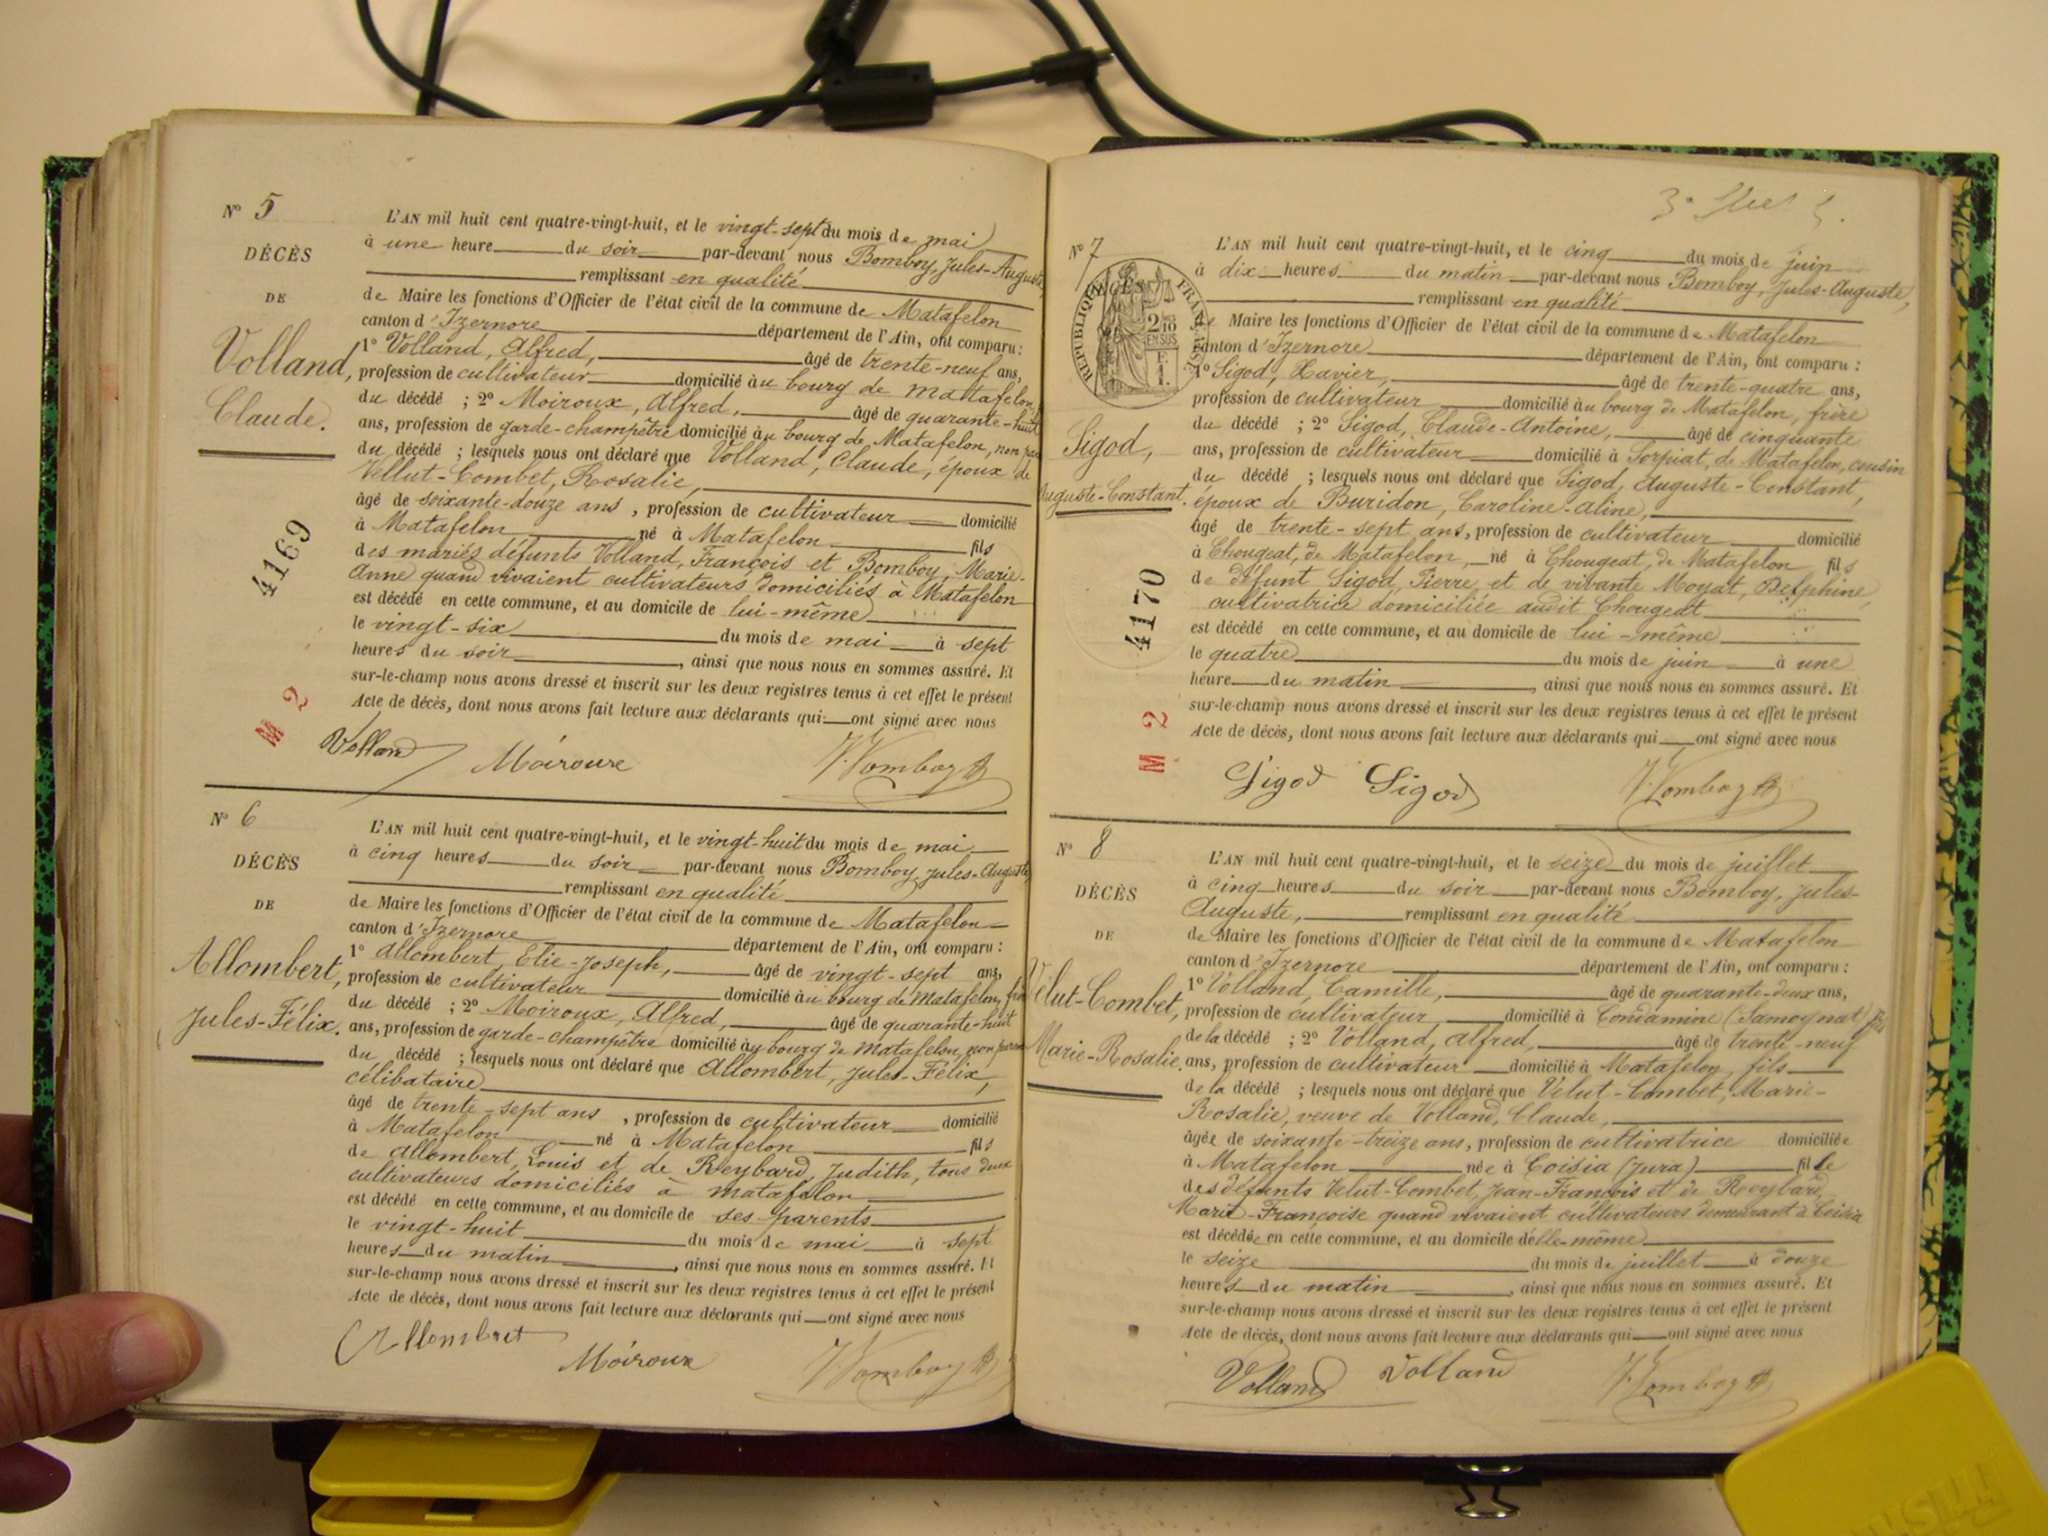 N° 5
DÉCÈS
DE
Volland,
Claude.
4169
M 2
L'AN mil huit cent quatre-vingt-huit, et le vingt-sept du mois de mai
à une heure du soir par-devant nous Bomboy, Jules-Auguste,
remplissant en qualité
de Maire les fonctions d'Officier de l'état civil de la commune de Matafelon
canton d'Izernore département de l'Ain, ont comparu :
1° Volland, Alfred, âgé de trente-neuf ans,
profession de cultivateur domicilié au bourg de Matafelon,
du décédé ; 2° Moiroux, Alfred, âgé de quarante-huit
ans, profession de garde-champêtre domicilié au bourg de Matafelon, non
du décédé ; lesquels nous ont déclaré que Volland, Claude, époux de
Vellut-Combet, Rosalie,
âgé de soixante-douze ans, profession de cultivateur domicilié
à Matafelon né à Matafelon fils
des mariés défunts Volland, François et Bomboy, Marie-
Anne quand vivaient cultivateurs domiciliés à Matafelon
est décédé en cette commune, et au domicile de lui-même
le vingt-six du mois de mai à sept
heures du soir, ainsi que nous nous en sommes assuré. Et
sur-le-champ nous avons dressé et inscrit sur les deux registres tenus à cet effet le présent
Acte de décès, dont nous avons fait lecture aux déclarants qui ont signé avec nous
Volland Moiroux J. Bomboy
N° 6
DÉCÈS
DE
Allombert,
Jules-Félix.
L'AN mil huit cent quatre-vingt-huit, et le vingt-huit du mois de mai
à cinq heures du soir par-devant nous Bomboy, Jules-Auguste,
remplissant en qualité
de Maire les fonctions d'Officier de l'état civil de la commune de Matafelon
canton d'Izernore département de l'Ain, ont comparu :
1° Allombert, Elie-Joseph, âgé de vingt-sept ans,
profession de cultivateur domicilié au bourg de Matafelon,
du décédé ; 2° Moiroux, Alfred, âgé de quarante-huit
ans, profession de garde-champêtre domicilié au bourg de Matafelon, non parent
du décédé ; lesquels nous ont déclaré que Allombert, Jules-Félix,
célibataire
âgé de trente-sept ans, profession de cultivateur domicilié
à Matafelon né à Matafelon fils
de Allombert, Louis et de Reybard, Judith, tous deux
cultivateurs domiciliés à Matafelon
est décédé en cette commune, et au domicile de ses parents
le vingt-huit du mois de mai à sept
heures du matin, ainsi que nous nous en sommes assuré. Et
sur-le-champ nous avons dressé et inscrit sur les deux registres tenus à cet effet le présent
Acte de décès, dont nous avons fait lecture aux déclarants qui ont signé avec nous
Allombert Moiroux J. Bomboy
N° 7
RÉPUBLIQUE FRANÇAISE
2/10
EN SUS
F.
1.
Sigod,
Auguste-Constant.
4170
M 2
L'AN mil huit cent quatre-vingt-huit, et le cinq du mois de juin
à dix heures du matin par-devant nous Bomboy, Jules-Auguste,
remplissant en qualité
de Maire les fonctions d'Officier de l'état civil de la commune de Matafelon
canton d'Izernore département de l'Ain, ont comparu :
1° Sigod, Xavier, âgé de trente-quatre ans,
profession de cultivateur domicilié au bourg de Matafelon, frère
du décédé ; 2° Sigod, Claude-Antoine, âgé de cinquante
ans, profession de cultivateur domicilié à Corpiat, de Matafelon, cousin
du décédé ; lesquels nous ont déclaré que Sigod, Auguste-Constant,
époux de Buridon, Caroline-Aline,
âgé de trente-sept ans, profession de cultivateur domicilié
à Chougeat, de Matafelon, né à Chougeat, de Matafelon fils
de défunt Sigod, Pierre et de vivante Moyat, Delphine,
cultivatrice domiciliée audit Chougeat
est décédé en cette commune, et au domicile de lui-même
le quatre du mois de juin à une
heure du matin, ainsi que nous nous en sommes assuré. Et
sur-le-champ nous avons dressé et inscrit sur les deux registres tenus à cet effet le présent
Acte de décès, dont nous avons fait lecture aux déclarants qui ont signé avec nous
Sigod Sigod J. Bomboy
N° 8
DÉCÈS
DE
Velut-Combet,
Marie-Rosalie.
L'AN mil huit cent quatre-vingt-huit, et le seize du mois de juillet
à cinq heures du soir par-devant nous Bomboy, Jules-
Auguste, remplissant en qualité
de Maire les fonctions d'Officier de l'état civil de la commune de Matafelon
canton d'Izernore département de l'Ain, ont comparu :
1° Volland, Camille, âgé de quarante-deux ans,
profession de cultivateur domicilié à Condamine (Samognat) fils
de la décédé ; 2° Volland, Alfred, âgé de trente-neuf
ans, profession de cultivateur domicilié à Matafelon, fils
de la décédé ; lesquels nous ont déclaré que Velut-Combet, Marie-
Rosalie, veuve de Volland, Claude,
âgée de soixante-treize ans, profession de cultivatrice domiciliée
à Matafelon née à Coisia (Jura) fille
des défunts Velut-Combet, Jean-François et de Reybard,
Marie-Françoise quand vivaient cultivateurs demeurant à Coisia
est décédée en cette commune, et au domicile d'elle-même
le seize du mois de juillet à douze
heures du matin, ainsi que nous nous en sommes assuré. Et
sur-le-champ nous avons dressé et inscrit sur les deux registres tenus à cet effet le présent
Acte de décès, dont nous avons fait lecture aux déclarants qui ont signé avec nous
Volland Volland J. Bomboy